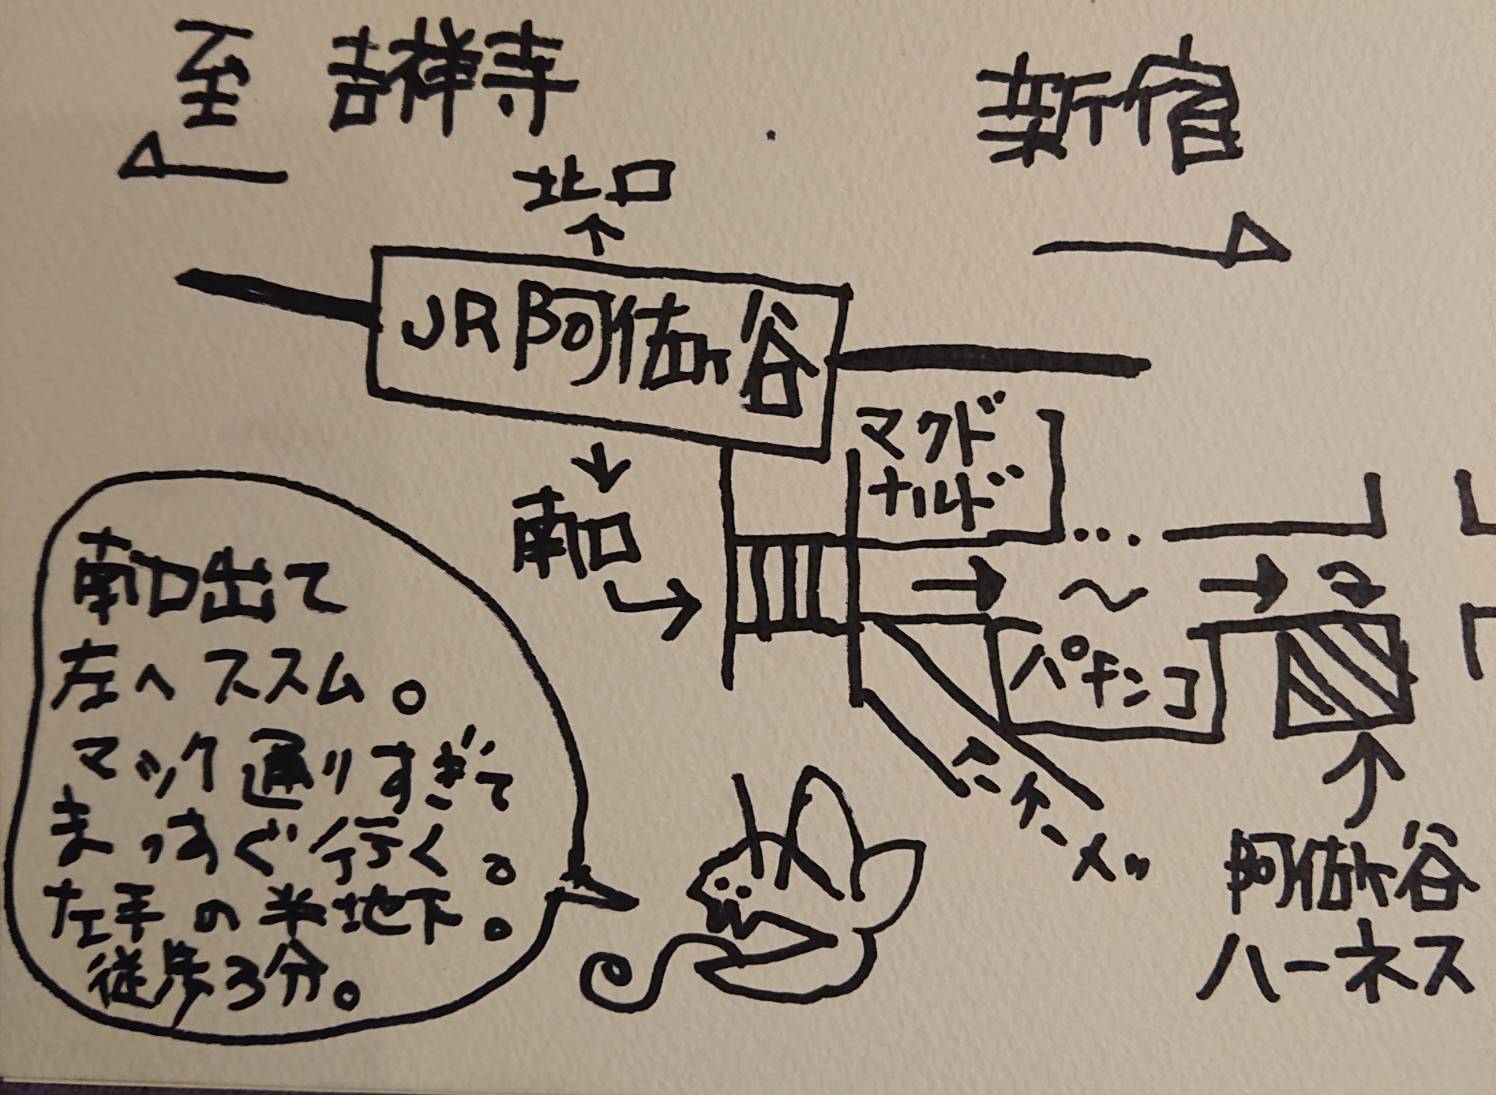 至 吉祥寺
新宿
北口
JR阿佐ヶ谷
マクド
ナルド
南口
パチンコ
アーケードメッ
阿佐ヶ谷
ハーネス
南口出て
左へススム。
マック通りすぎて
まっすぐ行く。
左手の半地下。
徒歩3分。